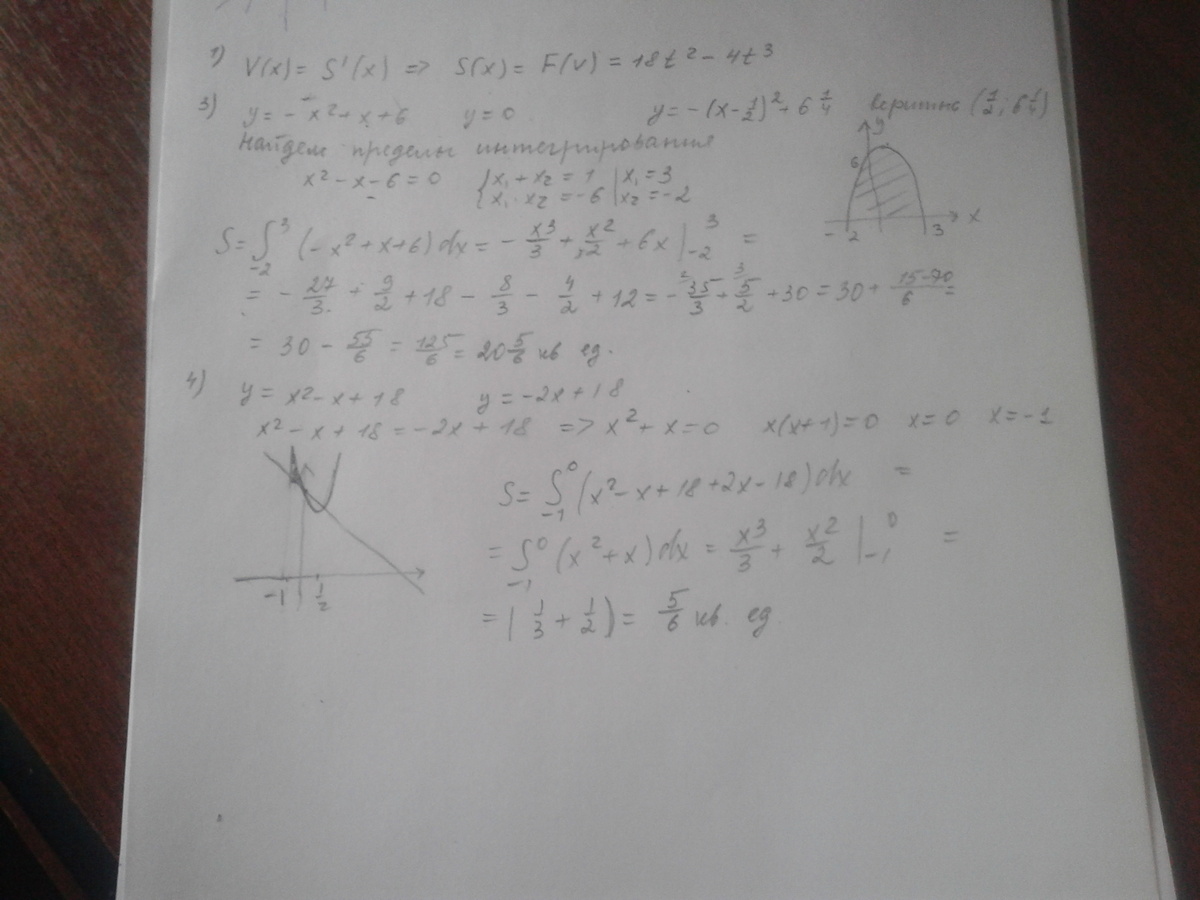 1) V(x) = S'(x) => S(x) = F(v) = 18t² - 4t³
3) y = - x² + x + 6 y = 0 y = - (x - 1/2)² + 6 1/4 вершина (1/2; 6 1/4)
Найдем пределы интегрирования
x² - x - 6 = 0 { x₁ + x₂ = 1 | x₁ = 3
x₁ · x₂ = -6 | x₂ = -2
y
6
x
-2 3
S = ∫₋₂³ (- x² + x + 6) dx = - x³/3 + x²/2 + 6x |₋₂³ =
= - 27/3 + 9/2 + 18 - 8/3 - 4/2 + 12 = - 35/3 + 5/2 + 30 = 30 + (15-70)/6 =
= 30 - 55/6 = 125/6 = 20 5/6 кв ед.
4) y = x² - x + 18 y = -2x + 18
x² - x + 18 = -2x + 18 => x² + x = 0 x(x+1) = 0 x = 0 x = -1
S = ∫₋₁⁰ (x² - x + 18 + 2x - 18) dx =
= ∫₋₁⁰ (x² + x) dx = x³/3 + x²/2 |₋₁⁰ =
-1 1/2
= ( 1/3 + 1/2 ) = 5/6 кв. ед